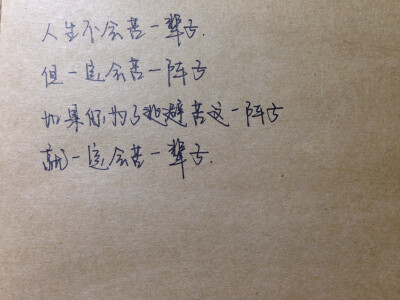 人生不会苦一辈子.
但一定会苦一阵子
如果你为了逃避苦这一阵子
就一定会苦一辈子.